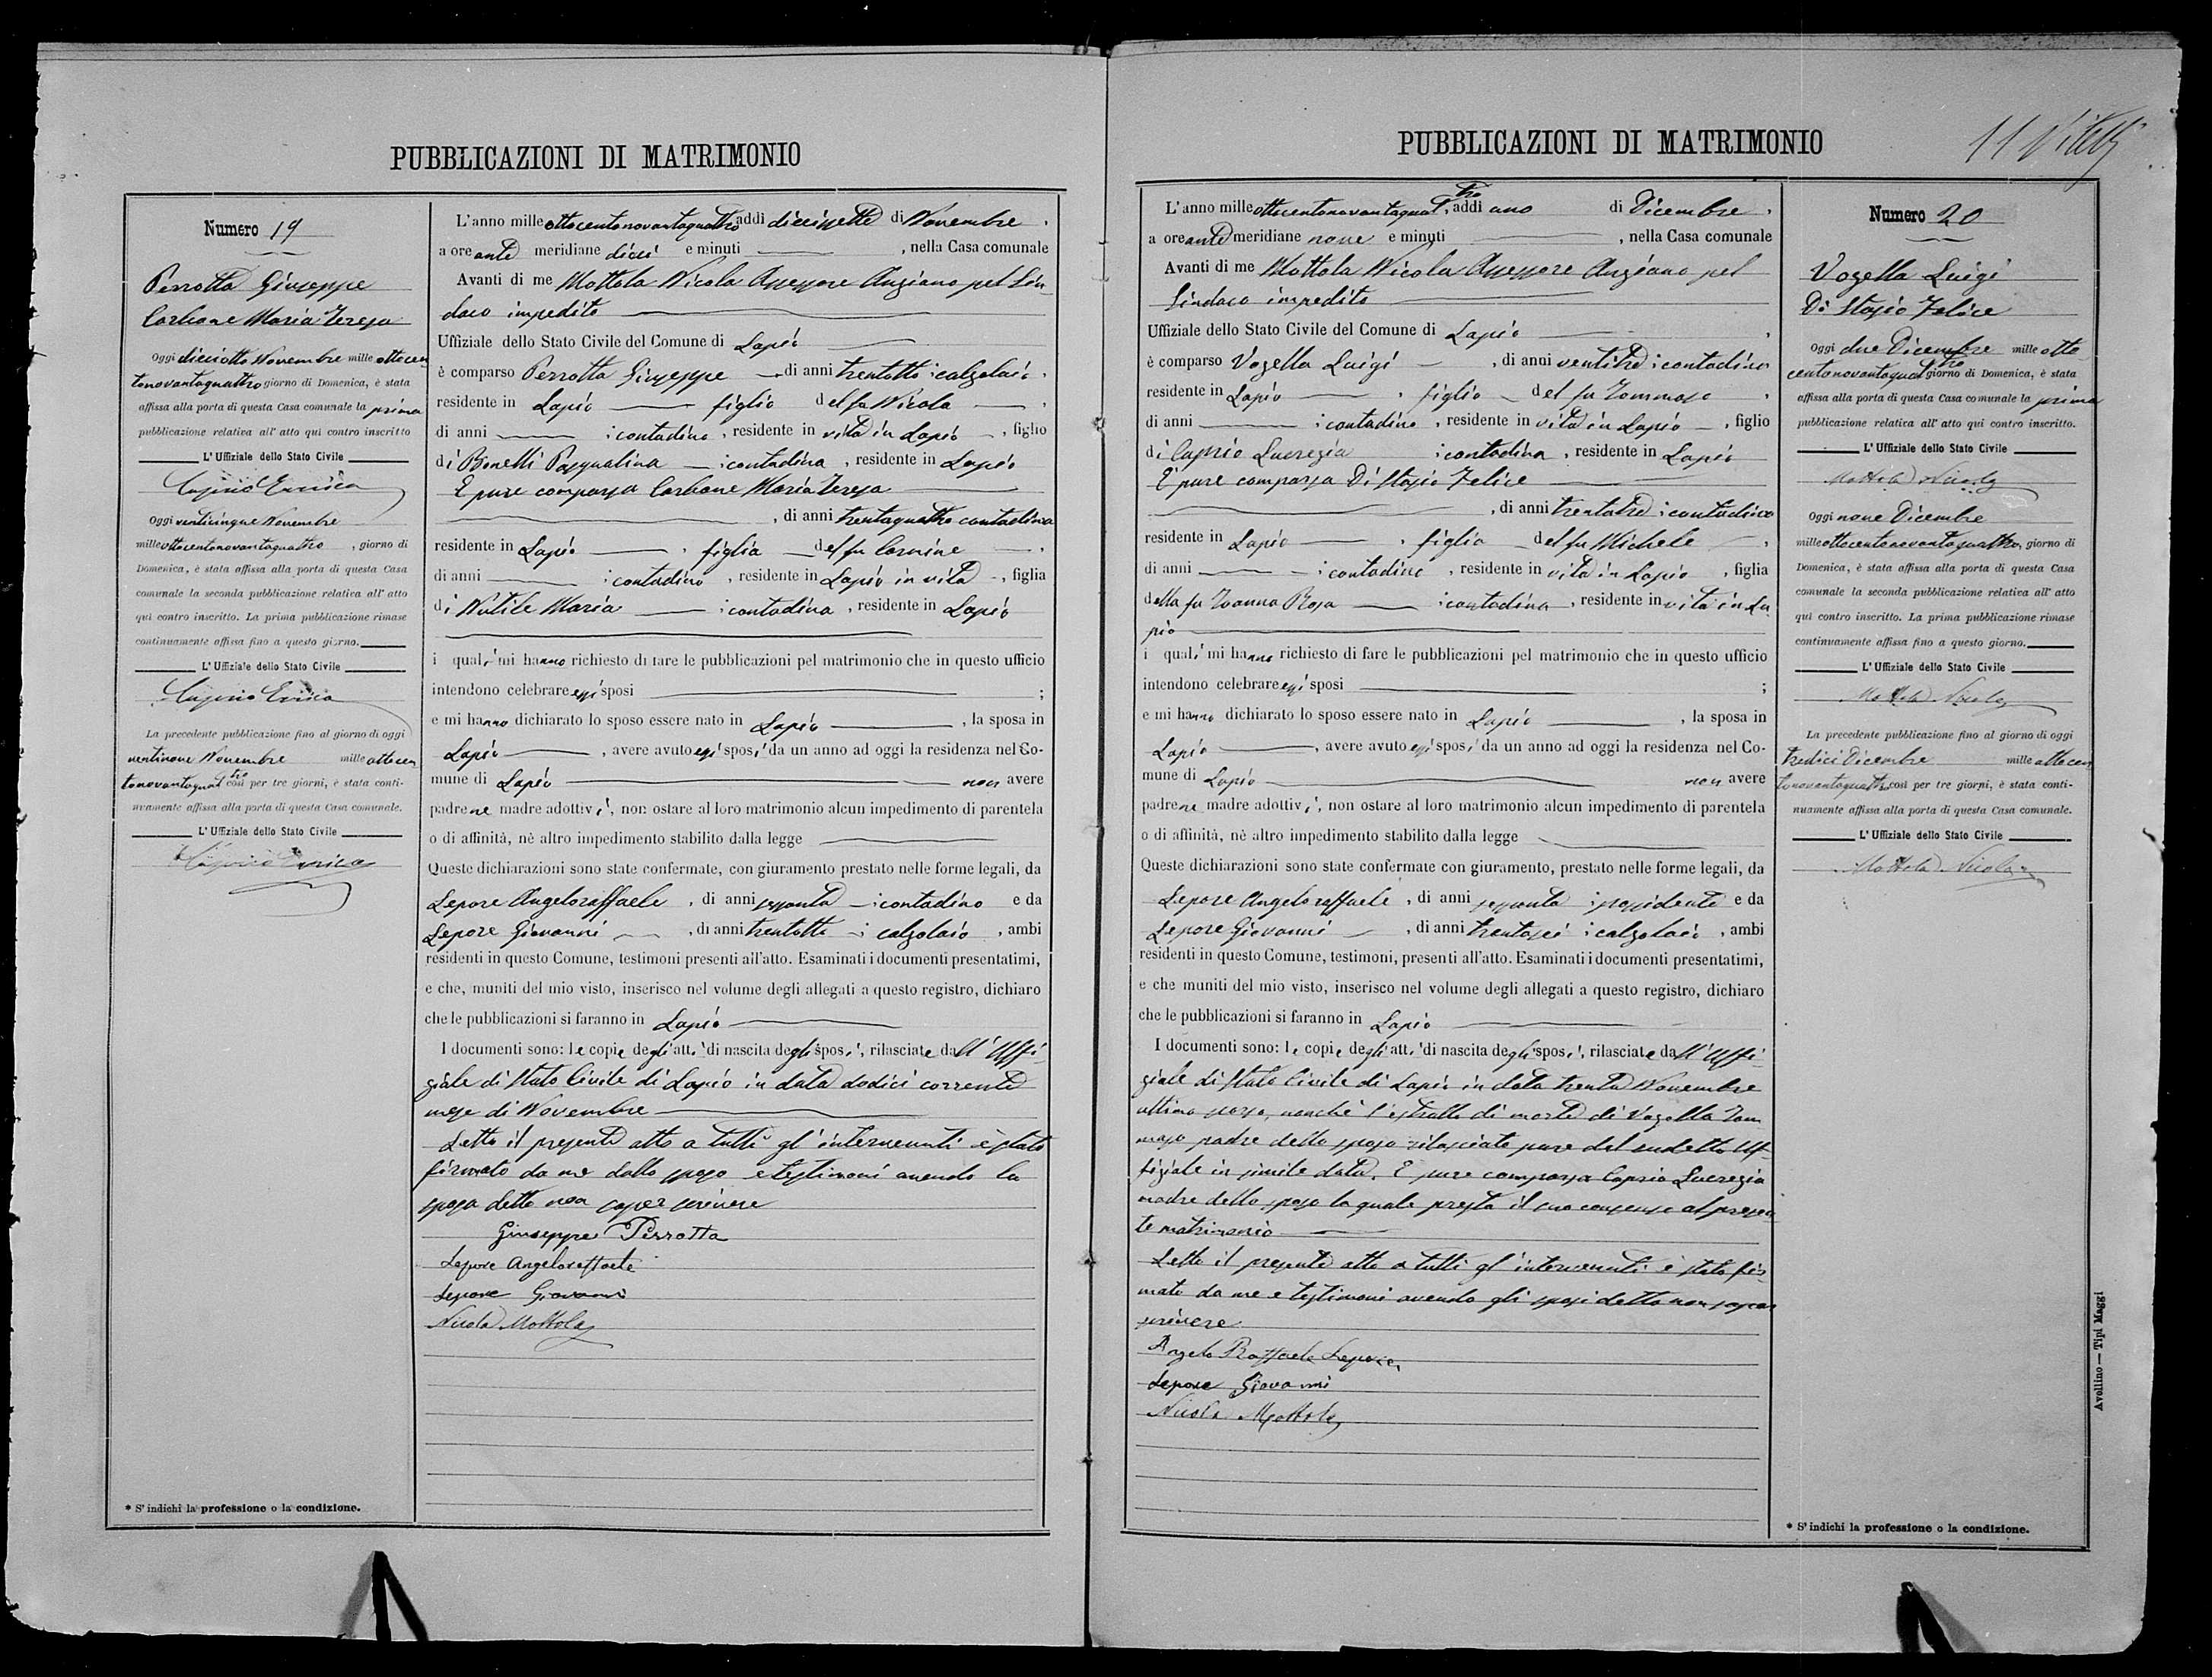 PUBBLICAZIONI DI MATRIMONIO
Numero 19
Perrotta Giuseppe
Carbone Maria Teresa
Oggi dieciotto Novembre mille ottocen
tonovantaquattro giorno di Domenica, è stata
affissa alla porta di questa Casa comunale la prima
pubblicazione relativa all' atto quì contro inscritto
L' Uffiziale dello Stato Civile
Caprio Enrico
Oggi venticinque Novembre
mille ottocentonovantaquattro, giorno di
Domenica, è stata affissa alla porta di questa Casa
comunale la seconda pubblicazione relativa all' atto
quì contro inscritto. La prima pubblicazione rimase
continuamente affissa fino a questo giorno.
L' Uffiziale dello Stato Civile
Caprio Enrico
La precedente pubblicazione fino al giorno di oggi
ventinove Novembre mille ottocen
tonovantaquattro così per tre giorni, è stata conti-
nuamente affissa alla porta di questa Casa comunale.
L' Uffiziale dello Stato Civile
Caprio Enrico
* S' indichi la professione o la condizione.
L'anno mille ottocentonovantaquattro addì diecissette di Novembre,
a ore ante meridiane dieci e minuti , nella Casa comunale
Avanti di me Mottola Nicola Assessore Anziano pel Sin-
daco impedito
Uffiziale dello Stato Civile del Comune di Lapio
è comparso Perrotta Giuseppe di anni trentotto; calzolaio,
residente in Lapio, figlio del fu Nicola,
di anni ; contadino, residente in vita in Lapio, figlio
di Bonelli Pasqualina ; contadina, residente in Lapio
E pure comparsa Carbone Maria Teresa
, di anni trentaquattro contadina
residente in Lapio, figlia del fu Carmine,
di anni ; contadino, residente in Lapio in vita, figlia
di Nutile Maria ; contadina, residente in Lapio
i quali mi hanno richiesto di fare le pubblicazioni pel matrimonio che in questo ufficio
intendono celebrare essi sposi ;
e mi hanno dichiarato lo sposo essere nato in Lapio , la sposa in
Lapio , avere avuto essi sposi da un anno ad oggi la residenza nel Co-
mune di Lapio non avere
padre ne madre adottivi, non ostare al loro matrimonio alcun impedimento di parentela
o di affinità, nè altro impedimento stabilito dalla legge
Queste dichiarazioni sono state confermate, con giuramento, prestato nelle forme legali, da
Lepore Angeloraffaele, di anni sessanta; contadino e da
Lepore Giovanni, di anni trentotto; calzolaio, ambi
residenti in questo Comune, testimoni presenti all'atto. Esaminati i documenti presentatimi,
e che, muniti del mio visto, inserisco nel volume degli allegati a questo registro, dichiaro
che le pubblicazioni si faranno in Lapio
I documenti sono: le copie degli atti di nascita degli sposi, rilasciate dall' Uffi-
ziale di Stato Civile di Lapio in data dodici corrente
mese di Novembre
Letto il presente atto a tutti gl' intervenuti è stato
firmato da me dallo sposo e testimoni avendo la
sposa detto non saper scrivere
Giuseppe Perrotta
Lepore Angeloraffaele
Lepore Giovanni
Nicola Mottola
PUBBLICAZIONI DI MATRIMONIO
11
L'anno mille ottocentonovantaquattro, addì uno di Dicembre,
a ore ante meridiane nove e minuti , nella Casa comunale
Avanti di me Mottola Nicola Assessore Anziano pel
Sindaco impedito
Uffiziale dello Stato Civile del Comune di Lapio,
è comparso Vozella Luigi , di anni ventitre; contadino
residente in Lapio, figlio del fu Tommaso,
di anni ; contadino, residente in vita in Lapio, figlio
di Caprio Lucrezia ; contadina, residente in Lapio
E pure comparsa Di Stasio Felice
, di anni trentatre; contadina
residente in Lapio, figlia del fu Michele,
di anni ; contadino, residente in vita in Lapio, figlia
della fu Ioanna Rosa ; contadina, residente in vita in La
pio
i quali mi hanno richiesto di fare le pubblicazioni pel matrimonio che in questo ufficio
intendono celebrare essi sposi ;
e mi hanno dichiarato lo sposo essere nato in Lapio , la sposa in
Lapio , avere avuto essi sposi da un anno ad oggi la residenza nel Co-
mune di Lapio non avere
padre ne madre adottivi, non ostare al loro matrimonio alcun impedimento di parentela
o di affinità, nè altro impedimento stabilito dalla legge
Queste dichiarazioni sono state confermate con giuramento, prestato nelle forme legali, da
Lepore Angeloraffaele, di anni sessanta; possidente e da
Lepore Giovanni, di anni trentasei; calzolaio, ambi
residenti in questo Comune, testimoni, presenti all'atto. Esaminati i documenti presentatimi,
e che muniti del mio visto, inserisco nel volume degli allegati a questo registro, dichiaro
che le pubblicazioni si faranno in Lapio
I documenti sono: le copie degli atti di nascita degli sposi, rilasciate dall' Uffi-
ziale di Stato Civile di Lapio in data trenta Novembre
ultimo scorso, nonchè l'estratto di morte di Vozella Tom
maso padre dello sposo rilasciato pure dal sudetto Uf-
fiziale in simile data. E pure comparsa Caprio Lucrezia
madre dello sposo la quale presta il suo consenso al presen
te matrimonio
Letto il presente atto a tutti gl' intervenuti è stato fir-
mato da me e testimoni avendo gli sposi detto non saper
scrivere
Angelo Raffaele Lepore
Lepore Giovanni
Nicola Mottola
Numero 20
Vozella Luigi
Di Stasio Felice
Oggi due Dicembre mille otto
centonovantaquattro giorno di Domenica, è stata
affissa alla porta di questa Casa comunale la prima
pubblicazione relativa all' atto quì contro inscritto.
L' Uffiziale dello Stato Civile
Mottola Nicola
Oggi nove Dicembre
mille ottocentonovantaquattro, giorno di
Domenica, è stata affissa alla porta di questa Casa
comunale la seconda pubblicazione relativa all' atto
quì contro inscritto. La prima pubblicazione rimase
continuamente affissa fino a questo giorno.
L' Uffiziale dello Stato Civile
Mottola Nicola
La precedente pubblicazione fino al giorno di oggi
tredici Dicembre mille ottocen
tonovantaquattro così per tre giorni, è stata conti-
nuamente affissa alla porta di questa Casa comunale.
L' Uffiziale dello Stato Civile
Mottola Nicola
Avellino — Tipi Maggi
* S' indichi la professione o la condizione.